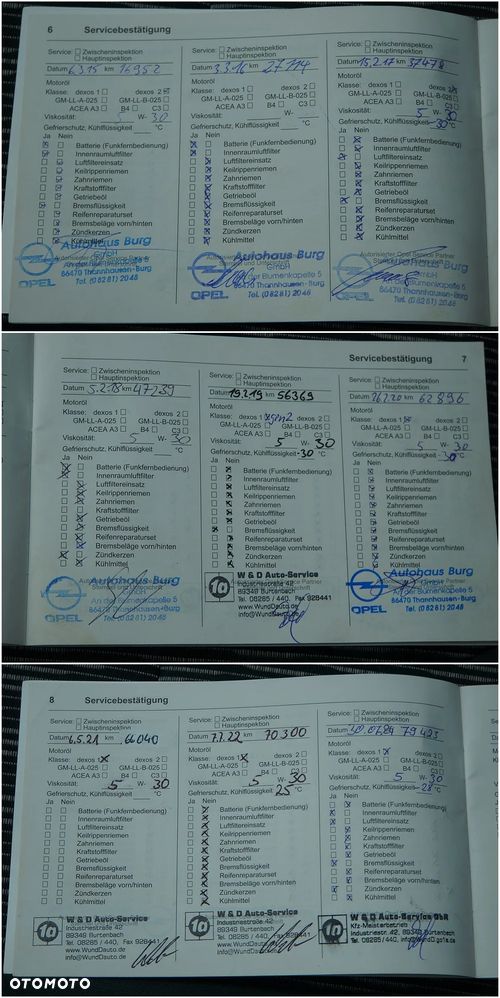 6 Servicebestätigung
Service: Zwischeninspektion
Hauptinspektion
Datum 6.3.15 km 16952
Motoröl
Klasse: dexos 1 dexos 2
GM-LL-A-025 GM-LL-B-025
ACEA A3 B4 C3
Viskosität: 5 W- 30
Gefrierschutz, Kühlflüssigkeit °C
Ja Nein
Batterie (Funkfernbedienung)
Innenraumluftfilter
Luftfiltereinsatz
Keilrippenriemen
Zahnriemen
Kraftstofffilter
Getriebeöl
Bremsflüssigkeit
Reifenreparaturset
Bremsbeläge vorn/hinten
Zündkerzen
Kühlmittel
Autohaus Burg
GmbH
An der Blumenkapelle 5
86470 Thannhausen-Burg
Tel. (08281) 2046
OPEL
Service: Zwischeninspektion
Hauptinspektion
Datum 3.3.16 km 27114
Motoröl
Klasse: dexos 1 dexos 2
GM-LL-A-025 GM-LL-B-025
ACEA A3 B4 C3
Viskosität: W-
Gefrierschutz, Kühlflüssigkeit °C
Ja Nein
Batterie (Funkfernbedienung)
Innenraumluftfilter
Luftfiltereinsatz
Keilrippenriemen
Zahnriemen
Kraftstofffilter
Getriebeöl
Bremsflüssigkeit
Reifenreparaturset
Bremsbeläge vorn/hinten
Zündkerzen
Kühlmittel
Autohaus Burg
GmbH
An der Blumenkapelle 5
86470 Thannhausen-Burg
Tel. (08281) 2046
OPEL
Service: Zwischeninspektion
Hauptinspektion
Datum 15.2.17 km
Motoröl
Klasse: dexos 1 dexos 2
GM-LL-A-025 GM-LL-B-025
ACEA A3 B4 C3
Viskosität: 5 W- 30
Gefrierschutz, Kühlflüssigkeit -30 °C
Ja Nein
Batterie (Funkfernbedienung)
Innenraumluftfilter
Luftfiltereinsatz
Keilrippenriemen
Zahnriemen
Kraftstofffilter
Getriebeöl
Bremsflüssigkeit
Reifenreparaturset
Bremsbeläge vorn/hinten
Zündkerzen
Kühlmittel
Autohaus Burg
GmbH
An der Blumenkapelle 5
86470 Thannhausen-Burg
Tel. (08281) 2046
OPEL
Servicebestätigung 7
Service: Zwischeninspektion
Hauptinspektion
Datum 5.2.18 km 47239
Motoröl
Klasse: dexos 1 dexos 2
GM-LL-A-025 GM-LL-B-025
ACEA A3 B4 C3
Viskosität: 5 W- 30
Gefrierschutz, Kühlflüssigkeit °C
Ja Nein
Batterie (Funkfernbedienung)
Innenraumluftfilter
Luftfiltereinsatz
Keilrippenriemen
Zahnriemen
Kraftstofffilter
Getriebeöl
Bremsflüssigkeit
Reifenreparaturset
Bremsbeläge vorn/hinten
Zündkerzen
Kühlmittel
Autohaus Burg
GmbH
An der Blumenkapelle 5
86470 Thannhausen-Burg
Tel. (08281) 2046
OPEL
Service: Zwischeninspektion
Hauptinspektion
Datum 19.2.19 km 56369
Motoröl
Klasse: dexos 1 dexos 2
GM-LL-A-025 GM-LL-B-025
ACEA A3 B4 C3
Viskosität: 5 W- 30
Gefrierschutz, Kühlflüssigkeit -30 °C
Ja Nein
Batterie (Funkfernbedienung)
Innenraumluftfilter
Luftfiltereinsatz
Keilrippenriemen
Zahnriemen
Kraftstofffilter
Getriebeöl
Bremsflüssigkeit
Reifenreparaturset
Bremsbeläge vorn/hinten
Zündkerzen
Kühlmittel
1a W & D Auto-Service
Industriestraße 42
89349 Burtenbach
Tel. 08285 / 440, Fax 928441
www.WundDauto.de
info@WundDauto.de
Service: Zwischeninspektion
Hauptinspektion
Datum 26.2.20 km 62896
Motoröl
Klasse: dexos 1 dexos 2
GM-LL-A-025 GM-LL-B-025
ACEA A3 B4 C3
Viskosität: 5 W- 30
Gefrierschutz, Kühlflüssigkeit -30 °C
Ja Nein
Batterie (Funkfernbedienung)
Innenraumluftfilter
Luftfiltereinsatz
Keilrippenriemen
Zahnriemen
Kraftstofffilter
Getriebeöl
Bremsflüssigkeit
Reifenreparaturset
Bremsbeläge vorn/hinten
Zündkerzen
Kühlmittel
Autohaus Burg
GmbH
An der Blumenkapelle 5
86470 Thannhausen-Burg
Tel. (08281) 2046
OPEL
8 Servicebestätigung
Service: Zwischeninspektion
Hauptinspektion
Datum 6.5.21 km 66040
Motoröl
Klasse: dexos 1 dexos 2
GM-LL-A-025 GM-LL-B-025
ACEA A3 B4 C3
Viskosität: 5 W- 30
Gefrierschutz, Kühlflüssigkeit °C
Ja Nein
Batterie (Funkfernbedienung)
Innenraumluftfilter
Luftfiltereinsatz
Keilrippenriemen
Zahnriemen
Kraftstofffilter
Getriebeöl
Bremsflüssigkeit
Reifenreparaturset
Bremsbeläge vorn/hinten
Zündkerzen
Kühlmittel
1a W & D Auto-Service
Industriestraße 42
89349 Burtenbach
Tel. 08285 / 440, Fax 928441
www.WundDauto.de
info@WundDauto.de
Service: Zwischeninspektion
Hauptinspektion
Datum 7.1.22 km 70300
Motoröl
Klasse: dexos 1 dexos 2
GM-LL-A-025 GM-LL-B-025
ACEA A3 B4 C3
Viskosität: 5 W- 30
Gefrierschutz, Kühlflüssigkeit 25 °C
Ja Nein
Batterie (Funkfernbedienung)
Innenraumluftfilter
Luftfiltereinsatz
Keilrippenriemen
Zahnriemen
Kraftstofffilter
Getriebeöl
Bremsflüssigkeit
Reifenreparaturset
Bremsbeläge vorn/hinten
Zündkerzen
Kühlmittel
1a W & D Auto-Service
Industriestraße 42
89349 Burtenbach
Tel. 08285 / 440, Fax 928441
www.WundDauto.de
info@WundDauto.de
Service: Zwischeninspektion
Hauptinspektion
Datum km 79423
Motoröl
Klasse: dexos 1 dexos 2
GM-LL-A-025 GM-LL-B-025
ACEA A3 B4 C3
Viskosität: 5 W- 30
Gefrierschutz, Kühlflüssigkeit -28 °C
Ja Nein
Batterie (Funkfernbedienung)
Innenraumluftfilter
Luftfiltereinsatz
Keilrippenriemen
Zahnriemen
Kraftstofffilter
Getriebeöl
Bremsflüssigkeit
Reifenreparaturset
Bremsbeläge vorn/hinten
Zündkerzen
Kühlmittel
1a W & D Auto-Service GbR
Kfz-Meisterbetrieb
Industriestr. 42, 89349 Burtenbach
Tel. 08285 / 440,
OTOMOTO